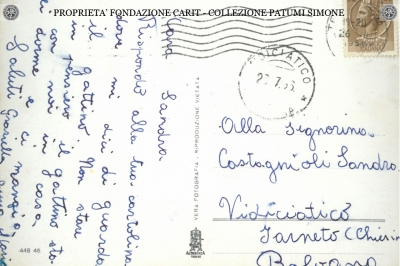 PROPRIETA' FONDAZIONE CARIT - COLLEZIONE PATUMI SIMONE
Cara Sandra
Rispondo alla tua cartolina
dove mi dici di guarda
il gattino. Non stare
in pensiero il gattino sta
dorme noi in casa
e ci mangia.
Saluti Graziella
448 46
VERA FOTOGRAFIA - RIPRODUZIONE VIETATA
VIDICIATICO
Alla Signorina
Castagnioli Sandra
Vidiciatico
Farneto (Chiesin
Bologna